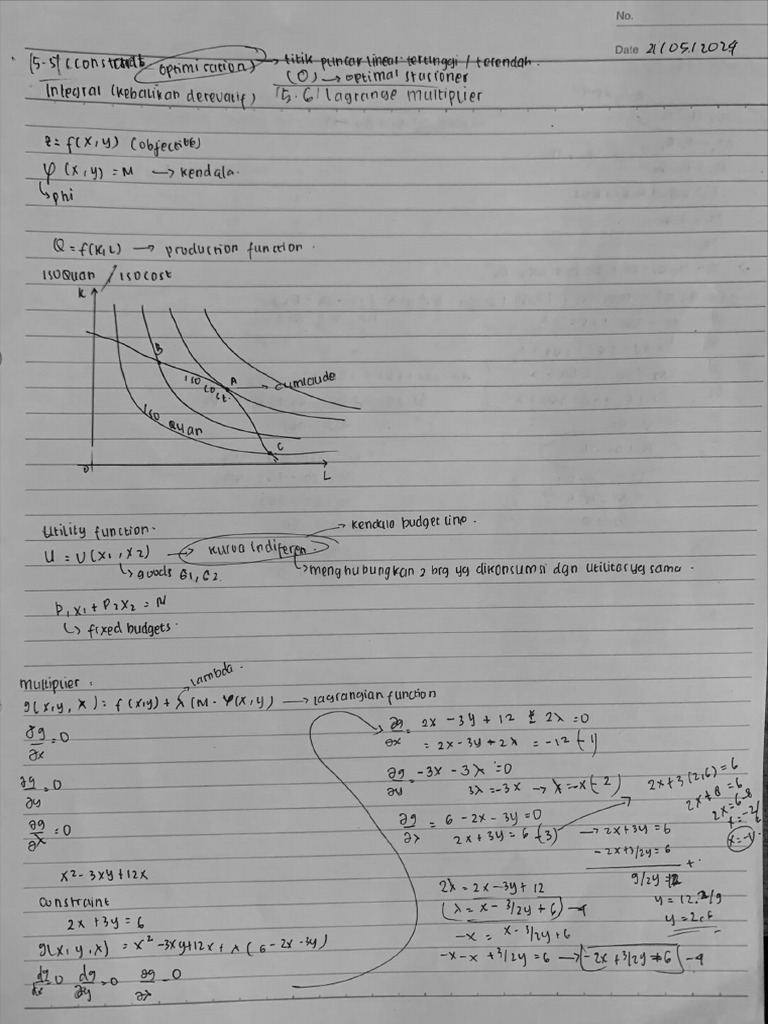 No.
Date 21/05/2024
15.51 (Constraints optimication) → titik puncak linear tertinggi / terendah.
(0) → optimal stasioner
Integral (kebalikan derevatif) 15.61 lagrange multiplier
z = f(x,y) (objective)
φ (x,y) = M → kendala.
↳ phi
Q = f(K,L) → production function.
ISO Quan / ISO cost
K
B
iso cost.
A → cumlaude
ISO Quan
C
0
L
utility function.
→ kendala budget line.
U = U(x1, x2) → kurva indiferen.
↳ goods G1, G2.
↳ menghubungkan 2 brg yg dikonsumsi dgn utilitas yg sama.
P1x1 + P2x2 = M
↳ fixed budgets.
multiplier :
lambda.
g(x,y,λ) = f(x,y) + λ (M - φ(x,y) → lagrangian function
∂g/∂x = 0
∂g/∂y = 0
∂g/∂λ = 0
x² - 3xy + 12x
constraint
2x + 3y = 6
g(x,y,λ) = x² - 3xy + 12x + λ (6 - 2x - 3y)
∂g/∂x = 0 ∂g/∂y = 0 ∂g/∂λ = 0
∂g/∂x = 2x - 3y + 12 - 2λ = 0
= 2x - 3y + 2λ = -12 (-1)
∂g/∂y = -3x - 3λ = 0
3λ = -3x → λ = -x (-2)
∂g/∂λ = 6 - 2x - 3y = 0
2x + 3y = 6 (-3)
2x + 3(2,6) = 6
2x + 8 = 6
2x = 6-8
x = -2/2
x = -1
→ 2x + 3y = 6
-2x + 3/2y = 6
+
9/2y = 12
y = 12.2/9
y = 2,6
2λ = 2x - 3y + 12
(λ = x - 3/2y + 6) → 4
-x = x - 3/2y + 6
-x - x + 3/2y = 6 → -2x + 3/2y = 6 -4